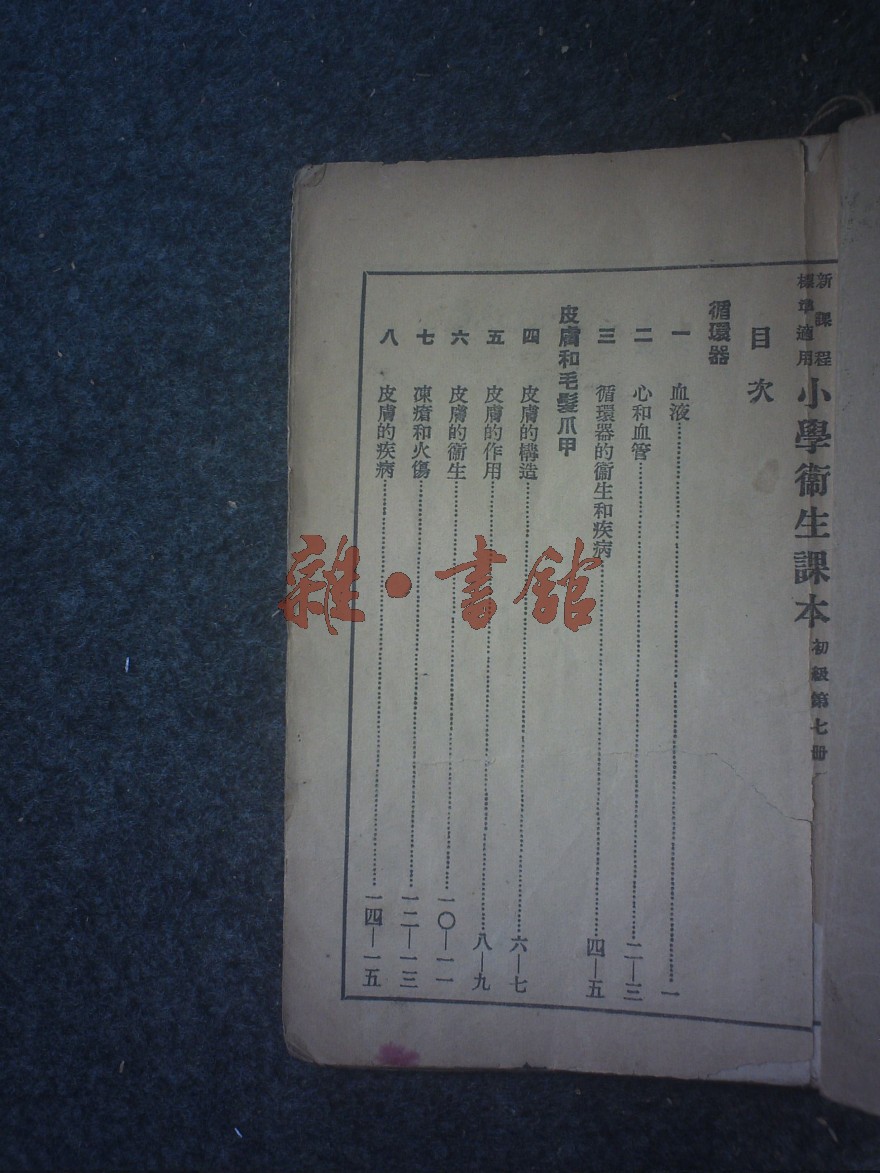 新課程
標準適用
小學衞生課本 初級第七册
目次
循環器
一 血液……一
二 心和血管……二—三
三 循環器的衞生和疾病……四—五
皮膚和毛髮爪甲
四 皮膚的構造……六—七
五 皮膚的作用……八—九
六 皮膚的衞生……一〇—一一
七 凍瘡和火傷……一二—一三
八 皮膚的疾病……一四—一五
雜·書館